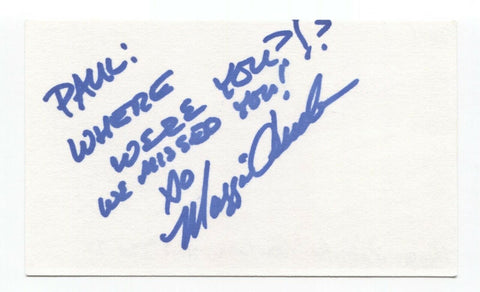 PAUL:
WHERE
WERE YOU?!?
WE MISSED YOU!
XO
Maggie